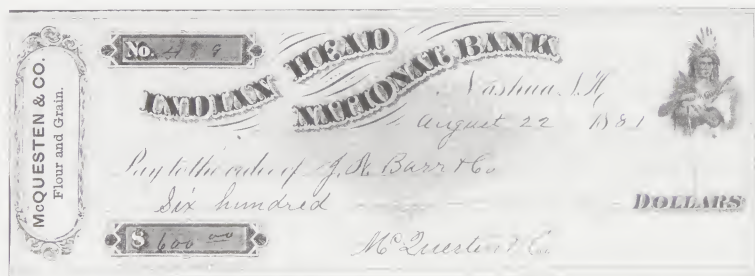 McQUESTEN & CO.
Flour and Grain.
No. 489
INDIAN HEAD
NATIONAL BANK
Nashua, N.H.,
August 22 1881
Pay to the order of J. R. Barr & Co
Six hundred DOLLARS
$ 600.00
McQuesten & Co.